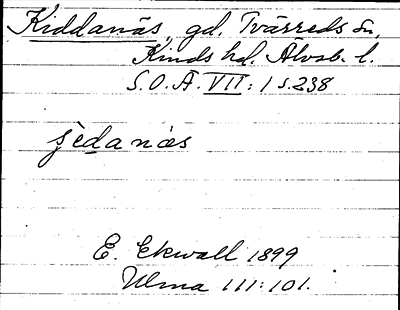 Kiddanäs, gd. Tvärreds sn,
Kinds hd. Älvsb. l.
S.O.Ä. VII: 1 s. 238
jèdanæs
E. Ekwall 1899
Ulma 111:101.